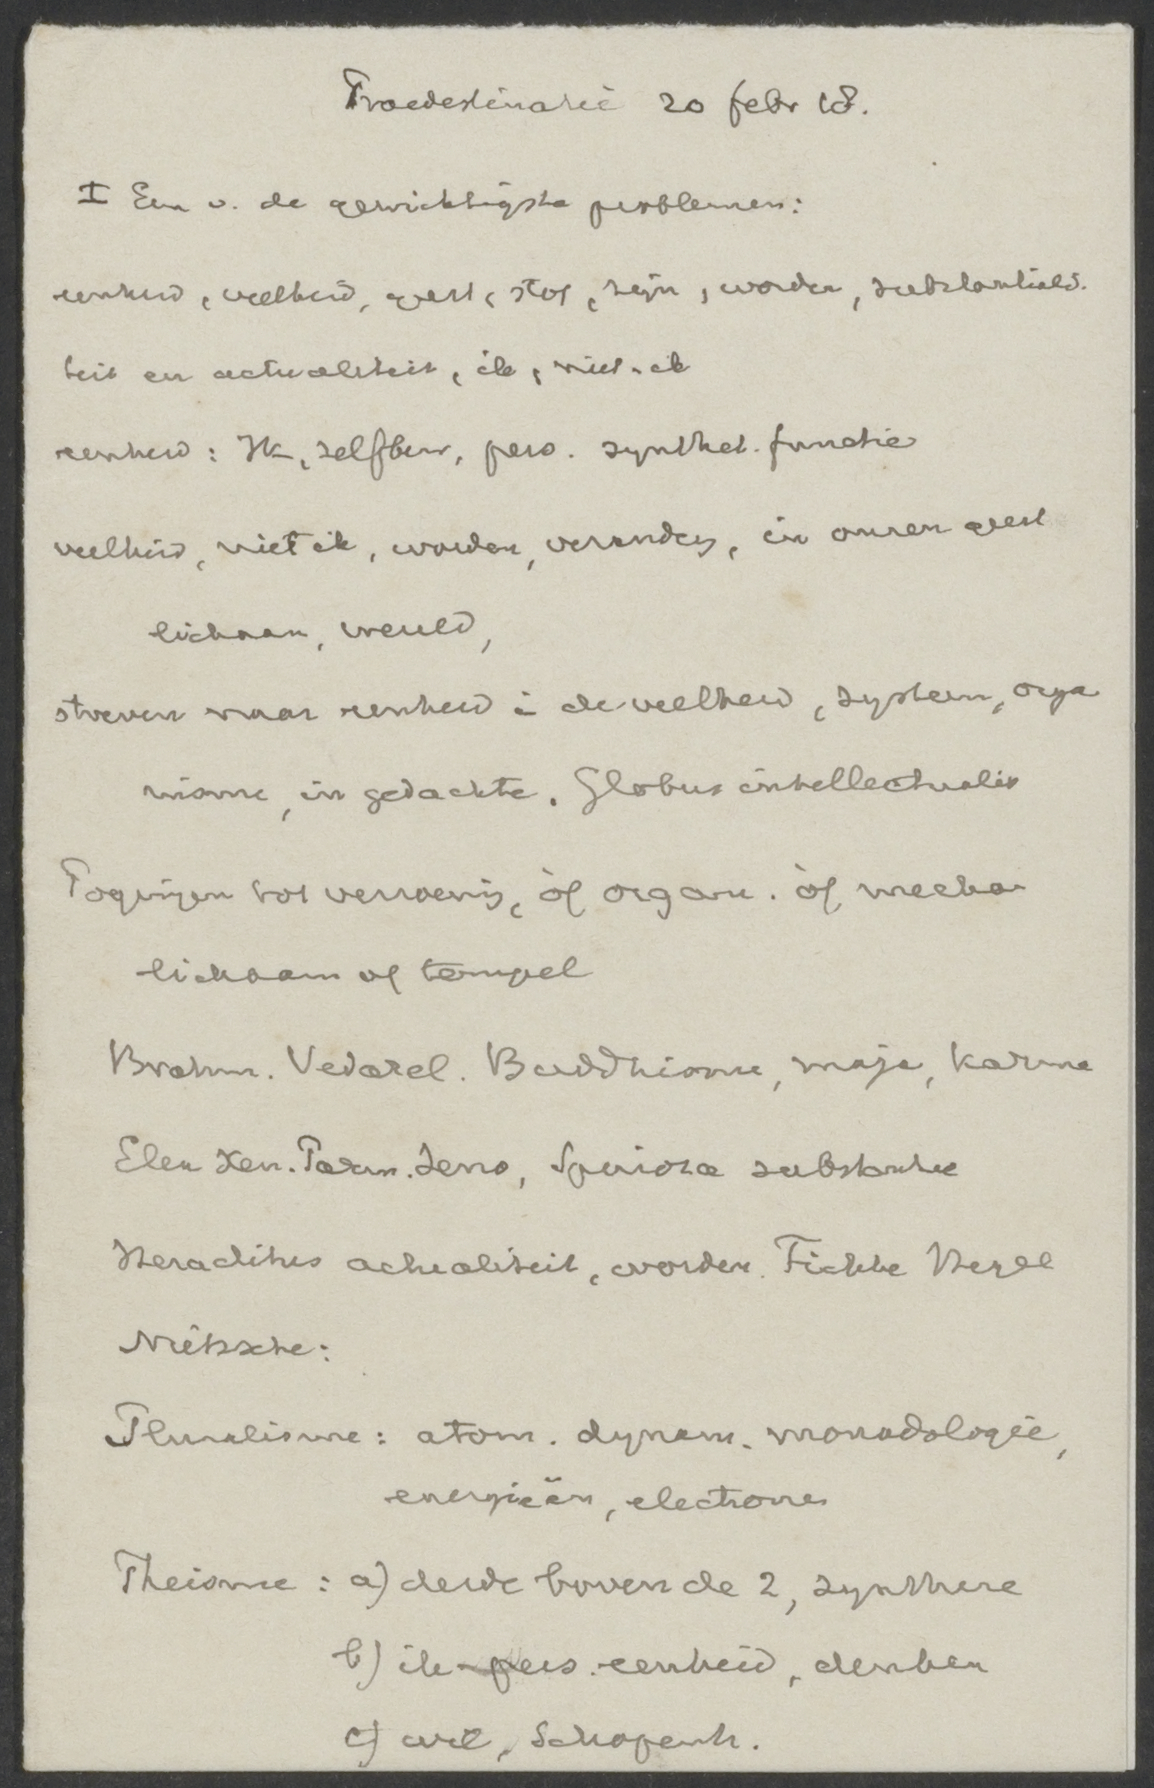 Praedestinatie 20 febr 18.
I Een v. de gewichtigste problemen:
eenheid, veelheid, geest, stof, zijn, worden, substantiali-
teit en actualiteit, ik, niet-ik
eenheid: Ik, zelfbew, pers. synthet. functie
veelheid, niet ik, worden, verandg, in onzen geest
lichaam, wereld,
streven naar eenheid i de veelheid, system, orga
nisme, in gedachte. Globus intellectualis
Pogingen tot verzoenig, òf organ. òf mecha
lichaam of tempel
Brahm. Vedarel. Buddhisme, maja, karma
Elea Xen. Parm. Zeno, Spinoza substantie
Heraclitus actualiteit, worden. Fichte Hegel
Nietzsche:
Pluralisme: atom. dynam. monadologie,
energieën, electrones
Theisme: a) derde boven de 2, synthese
b) ik-pers. eenheid, denken
c) wil, Schopenh.